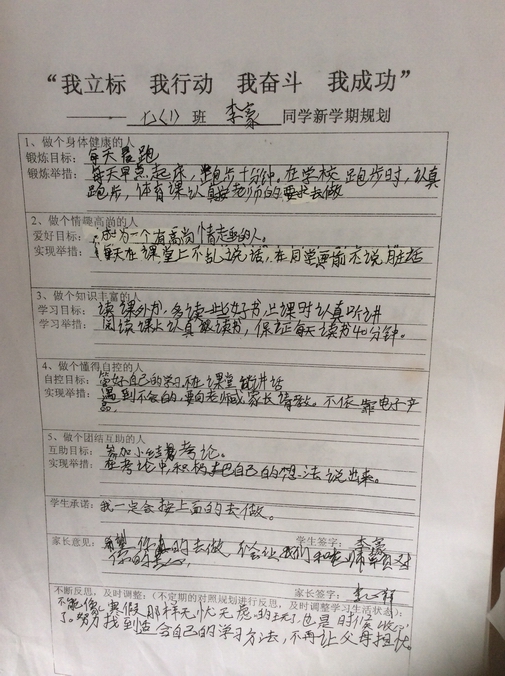 “我立标 我行动 我奋斗 我成功”
—— 七(1) 班 李豪 同学新学期规划
1、做个身体健康的人
锻炼目标：每天晨跑
锻炼举措：每天早点起床，跑步十分钟，在学校跑步时，认真
跑步，体育课认真按老师的要求去做
2、做个情趣高尚的人
爱好目标：成为一个有高尚情趣的人。
实现举措：每天在课堂上不乱说话，在同学面前不说脏话
3、做个知识丰富的人
学习目标：读课外书，多读一些好书，上课时认真听讲
学习举措：阅读课上认真读书，保证每天读书40分钟。
4、做个懂得自控的人
自控目标：管好自己的学习，不在课堂讲话
实现举措：遇到不会的要向老师或家长请教。不依靠电子产
品。
5、做个团结互助的人
互助目标：参加小组考论。
实现举措：在考论中，积极把自己的想法说出来。
学生承诺：我一定会按上面的去做。
学生签字：李豪
家长意见：希望你真的去做，不会让我们和老师
家长签字：
不断反思，及时调整：（不定期的对照规划进行反思，及时调整学习生活状态）：
不能像寒假那样无忧无虑的玩了，也是时候收心
了。努力找到适合自己的学习方法，不再让父母担忧。